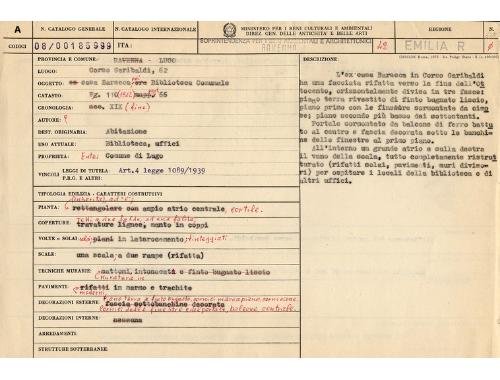 A
N. CATALOGO GENERALE
N. CATALOGO INTERNAZIONALE
MINISTERO PER I BENI CULTURALI E AMBIENTALI
DIREZ. GEN. DELLE ANTICHITÀ E BELLE ARTI
REGIONE
N.
CODICI
08/00185999
ITA:
SOPRINTENDENZA PER I BENI AMBIENTALI E ARCHITETTONICI
RAVENNA
42
EMILIA R
PROVINCIA E COMUNE: RAVENNA - LUGO
LUOGO: Corso Garibaldi, 62
OGGETTO: ex casa Baracca, ora Biblioteca Comunale
CATASTO: Fg. 110
CRONOLOGIA: sec. XIX (fine)
AUTORE: ?
DEST. ORIGINARIA: Abitazione
USO ATTUALE: Biblioteca, uffici
PROPRIETÀ: Ente: Comune di Lugo
VINCOLI LEGGI DI TUTELA: Art.4 legge 1089/1939
P.R.G. E ALTRI:
TIPOLOGIA EDILIZIA - CARATTERI COSTRUTTIVI
PIANTA: rettangolare con ampio atrio centrale, cortile.
COPERTURE: travature lignee, manto in coppi
VOLTE o SOLAI: piani in laterocemento;
SCALE: una scala a due rampe (rifatta)
TECNICHE MURARIE: mattoni, intonacata e finto bugnato liscio
PAVIMENTI: rifatti in marmo e trachite
DECORAZIONI ESTERNE: fascia sottobanchine decorata
DECORAZIONI INTERNE: nessuna
ARREDAMENTI:
STRUTTURE SOTTERRANEE:
DESCRIZIONE:
L'ex casa Baracca in Corso Garibaldi
ha una facciata rifatta verso la fine dell'ot
tocento, orizzontalmente divisa in tre fasce:
piano terra rivestito di finto bugnato liscio,
piano primo con le finestre sormontate da cima
se; piano secondo più basso dei sottostanti.
Portale sormontato da balcone di ferro battu
to al centro e fascia decorata sotto le banchi
ne delle finestre al primo piano.
All'interno un grande atrio e sulla destra
il vano della scala, tutto completamente ristrut
turato (rifatti solai, pavimenti, muri diviso
ri) per ospitare i locali della biblioteca e di
altri uffici.